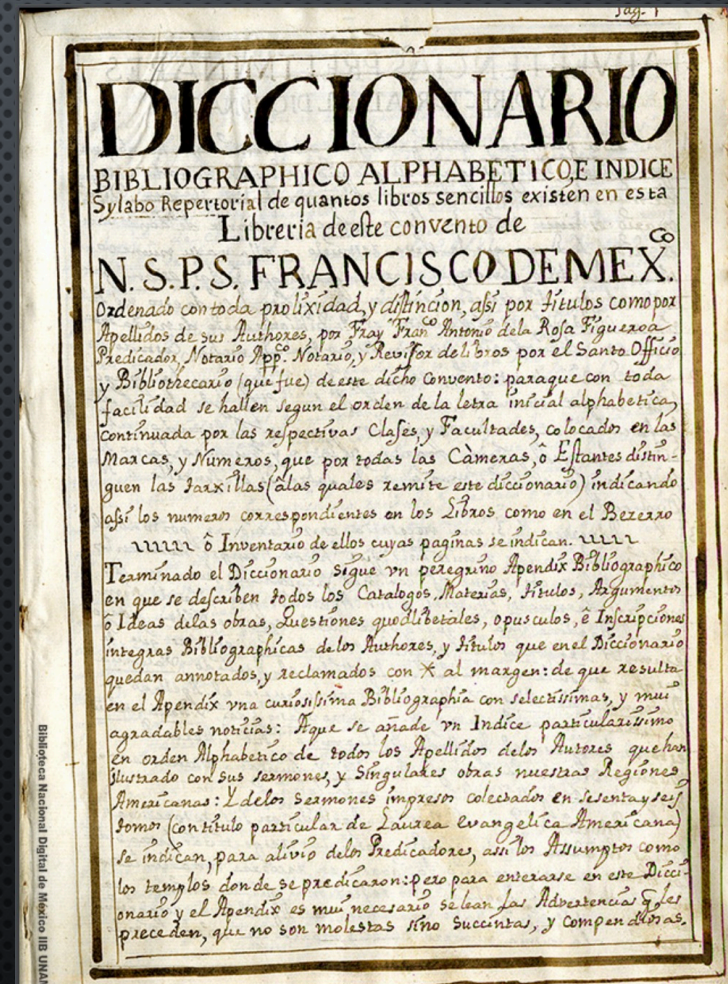 Pag. 1
DICCIONARIO
BIBLIOGRAPHICO ALPHABETICO, E INDICE
Sylabo Repertorial de quantos libros sencillos existen en esta
Libreria de este convento de
N. S. P. S. FRANCISCO DE MEX.co
Ordenado con toda prolixidad, y distincion, assi por titulos como por
Apellidos de sus Authores, por Fray Fran.co Antonio de la Rosa Figueroa
Predicador, Notario App.co Notario, y Revissor de libros por el Santo Officio
y Bibliothecario (que fue) de este dicho Convento: para que con toda
facilidad se hallen segun el orden de la letra inicial alphabetica,
continuada por las respectivas Clases, y Facultades, colocados en las
Marcas, y Numeros, que por todas las Càmeras, ô Estantes distin-
guen las tarxillas (â las quales remite este diccionario) indicando
assi los numeros correspondientes en los Libros como en el Bezerro
ô Inventario de ellos cuyas paginas se indican.
Terminado el Diccionario sigue vn peregrino Apendix Bibliographico
en que se describen todos los Catalogos, Materias, titulos, Argumentos
ô Ideas de las obras, Questiones quodlibetales, opusculos, ê Inscripciones
integras Bibliographicas de los Authores, y titulos que en el Diccionario
quedan annotados, y reclamados con X al margen: de que resulta
en el Apendix vna curiosissima Bibliographia con selectissimas, y mui
agradables noticias: A que se añade vn Indice particularissimo
en orden Alphabetico de todos los Apellidos de los Autores que han
ilustrado con sus sermones, y Singulares obras nuestras Regiones
Americanas: Y de los Sermones impresos colectados en sesenta y seis
tomos (con titulo particular de Laurea evangelica Americana)
se indican, para alivio de los Predicadores, assi los Assumptos como
los templos donde se predicaron: pero para enterarse en este Dicci-
onario y el Apendix es mui necesario se lean las Advertencias q. les
preceden, que no son molestas sino succintas, y compendiosas.
Biblioteca Nacional Digital de México IIB UNAM